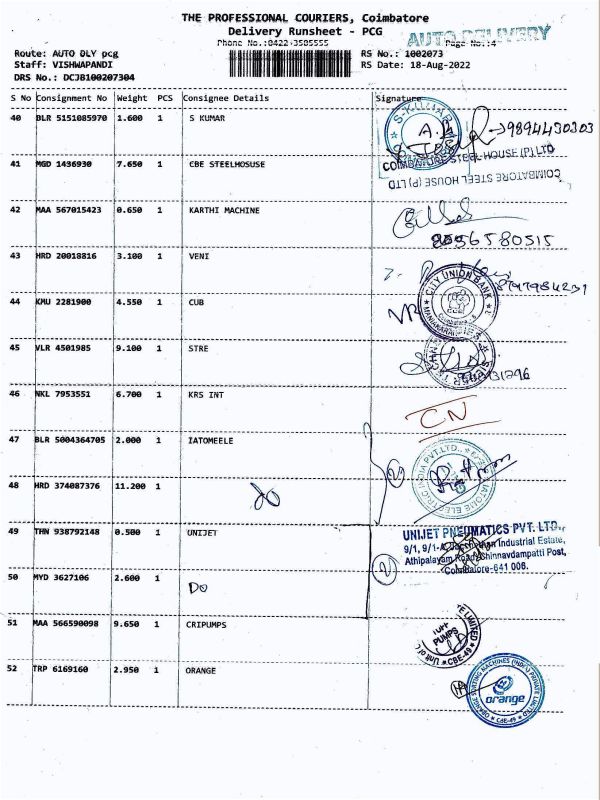 THE PROFESSIONAL COURIERS, Coimbatore
Delivery Runsheet - PCG
Phone No.:0422-3505555
AUTO DELIVERY
Page No.:4
Route: AUTO DLY pcg
RS No.: 1002073
Staff: VISHWAPANDI
RS Date: 18-Aug-2022
DRS No.: DCJB100207304
S No Consignment No Weight PCS Consignee Details Signature
40 BLR 5151085970 1.600 1 S KUMAR
S.KUMAR
9894430303
41 MGD 1436930 7.650 1 CBE STEELHOSUSE
COIMBATORE STEEL HOUSE (P) LTD
COIMBATORE STEEL HOUSE (P) LTD
42 MAA 567015423 0.650 1 KARTHI MACHINE
8056580515
43 HRD 20018816 3.100 1 VENI
44 KMU 2281900 4.550 1 CUB
CITY UNION BANK
45 VLR 4501985 9.100 1 STRE
46 NKL 7953551 6.700 1 KRS INT
CN
47 BLR 5004364705 2.000 1 IATOMEELE
48 HRD 374087376 11.200 1
do
2
49 THN 938792148 0.500 1 UNIJET
UNIJET PNEUMATICS PVT. LTD.,
9/1, 9/1-A, Industrial Estate,
Athipalayam Road, Chinnavdampatti Post,
Coimbatore-641 006.
50 MYD 3627106 2.600 1
Do
2
51 MAA 566590098 9.650 1 CRIPUMPS
PUMPS
CBE-49
52 TRP 6169160 2.950 1 ORANGE
orange
ORANGE SORTING MACHINES (INDIA) PRIVATE LIMITED
CBE-49